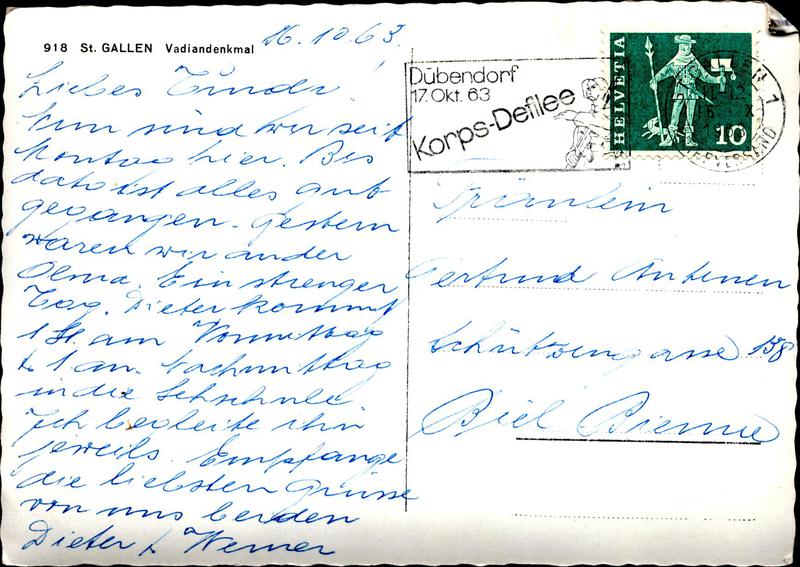 918 St. GALLEN Vadiandenkmal
16.10.63.
Liebes
Nun sind wir seit
Montag hier. Bis
dato ist alles gut
gegangen. Gestern
waren wir an der
Olma. Ein strenger
Tag. Dieter kommt
1 St. am Vormittag
& 1 am Nachmittag
in die Sehschule
Ich begleite ihn
jeweils. Empfange
die liebsten Grüsse
von uns beiden
Dieter & Werner
Dübendorf
17. Okt. 63
Korps-Defilee
HELVETIA
10
Fräulein
Gertrud Antenen
Schützengasse 138
Biel Bienne